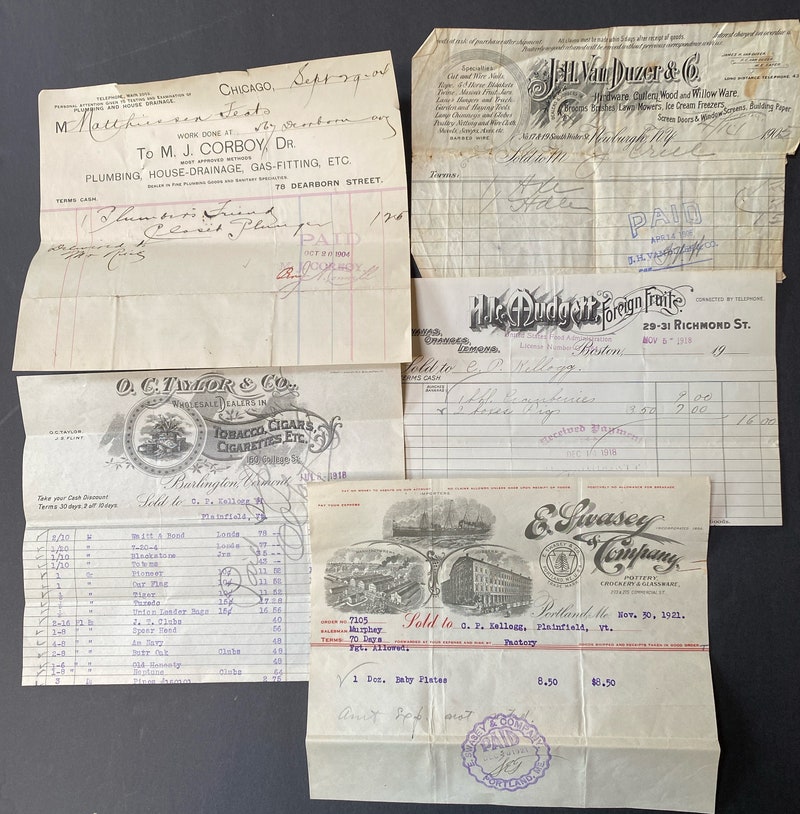 TELEPHONE, MAIN
PERSONAL ATTENTION GIVEN TO TESTING AND EXAMINATION OF
PLUMBING AND HOUSE DRAINAGE.
CHICAGO, Sept 29-04
M Matthiessen
WORK DONE AT Dearborn av
TO M. J. CORBOY, DR.
MOST APPROVED METHODS
PLUMBING, HOUSE-DRAINAGE, GAS-FITTING, ETC.
DEALER IN FINE PLUMBING GOODS AND SANITARY SPECIALTIES.
78 DEARBORN STREET.
TERMS CASH.
1 Plumber's Friend
Closet Plunger
Delivered to
PAID
OCT 20 1904
M. J. CORBOY
All claims must be made within 5 days after receipt of goods.
Interest charged on overdue
Specialties
Cut and Wire Nails,
Rope, & Horse Blankets
Prime Mason's Fruit Jars
Lane's Hangers and Track
Garden and Haying Tools
Lamp Chimneys and Globes
Poultry Netting and Wire Cloth
Shovels, Scoops, Axes, etc.
BARBED WIRE.
J.H. Van Duzer & Co.
JAMES H. VAN DUZER
LONG DISTANCE TELEPHONE
Hardware, Cutlery, Wood and Willow Ware.
Brooms, Brushes, Lawn Mowers, Ice Cream Freezers,
Screen Doors & Window Screens, Building Paper
No. 17 & 19 South Water St. Newburgh, N.Y. 190
Sold to M
Terms:
PAID
J. H. VAN DUZER & CO.
PER
Mudgett, Foreign Fruits.
CONNECTED BY TELEPHONE.
BANANAS,
ORANGES,
LEMONS.
29-31 RICHMOND ST.
United States Food Administration
License Number
Boston, NOV 5- 1918 19
Sold to C. P. Kellogg.
TERMS CASH
1 bbl Cranberries 9.00
2 boxes Figs 3.50 7.00
16.00
Received Payment
DEC 11 1918
O. C. TAYLOR & CO.,
WHOLESALE DEALERS IN
O.C. TAYLOR.
J.S. FLINT.
TOBACCO, CIGARS,
CIGARETTES, ETC.
160 College St.
Burlington, Vermont
1918
Take your Cash Discount
Terms 30 days, 2 off 10 days.
Sold to C. P. Kellogg
Plainfield, Vt.
2/10 M Waitt & Bond Londs 78
1/20 " 7-20-4 Londs
1/10 " Blackstone
1/10 " Totems
1 Pioneer 11 52
1 Our Flag 11 52
Tiger 11 52
Tuxedo 17 28
Union Leader Bags 16 56
2-16 J. T. Clubs 40
1-8 " " Spear Head 56
4-8 " " Am Navy 48
2-8 " " Burr Oak Clubs 48
1-6 " Old Honesty 48
1-8 " " Neptune Clubs 44
3 2 75
IMPORTERS,
PAY YOUR EXPRESS
NO CLAIMS ALLOWED UNLESS MADE UPON RECEIPT OF GOODS.
POSITIVELY NO ALLOWANCE FOR BREAKAGE.
E. Swasey
& Company,
INCORPORATED
POTTERY,
CROCKERY & GLASSWARE,
COMMERCIAL ST.
Portland, Me. Nov. 30, 1921.
ORDER NO. 7105
SALESMAN Murphey
TERMS 70 Days
Fgt. Allowed.
Sold to C. P. Kellogg, Plainfield, Vt.
FORWARDED AT YOUR EXPENSE AND RISK BY Factory
GOODS SHIPPED AND RECEIPTS TAKEN IN GOOD ORDER
1 Doz. Baby Plates 8.50 $8.50
E. SWASEY & COMPANY
PAID
PORTLAND, ME.